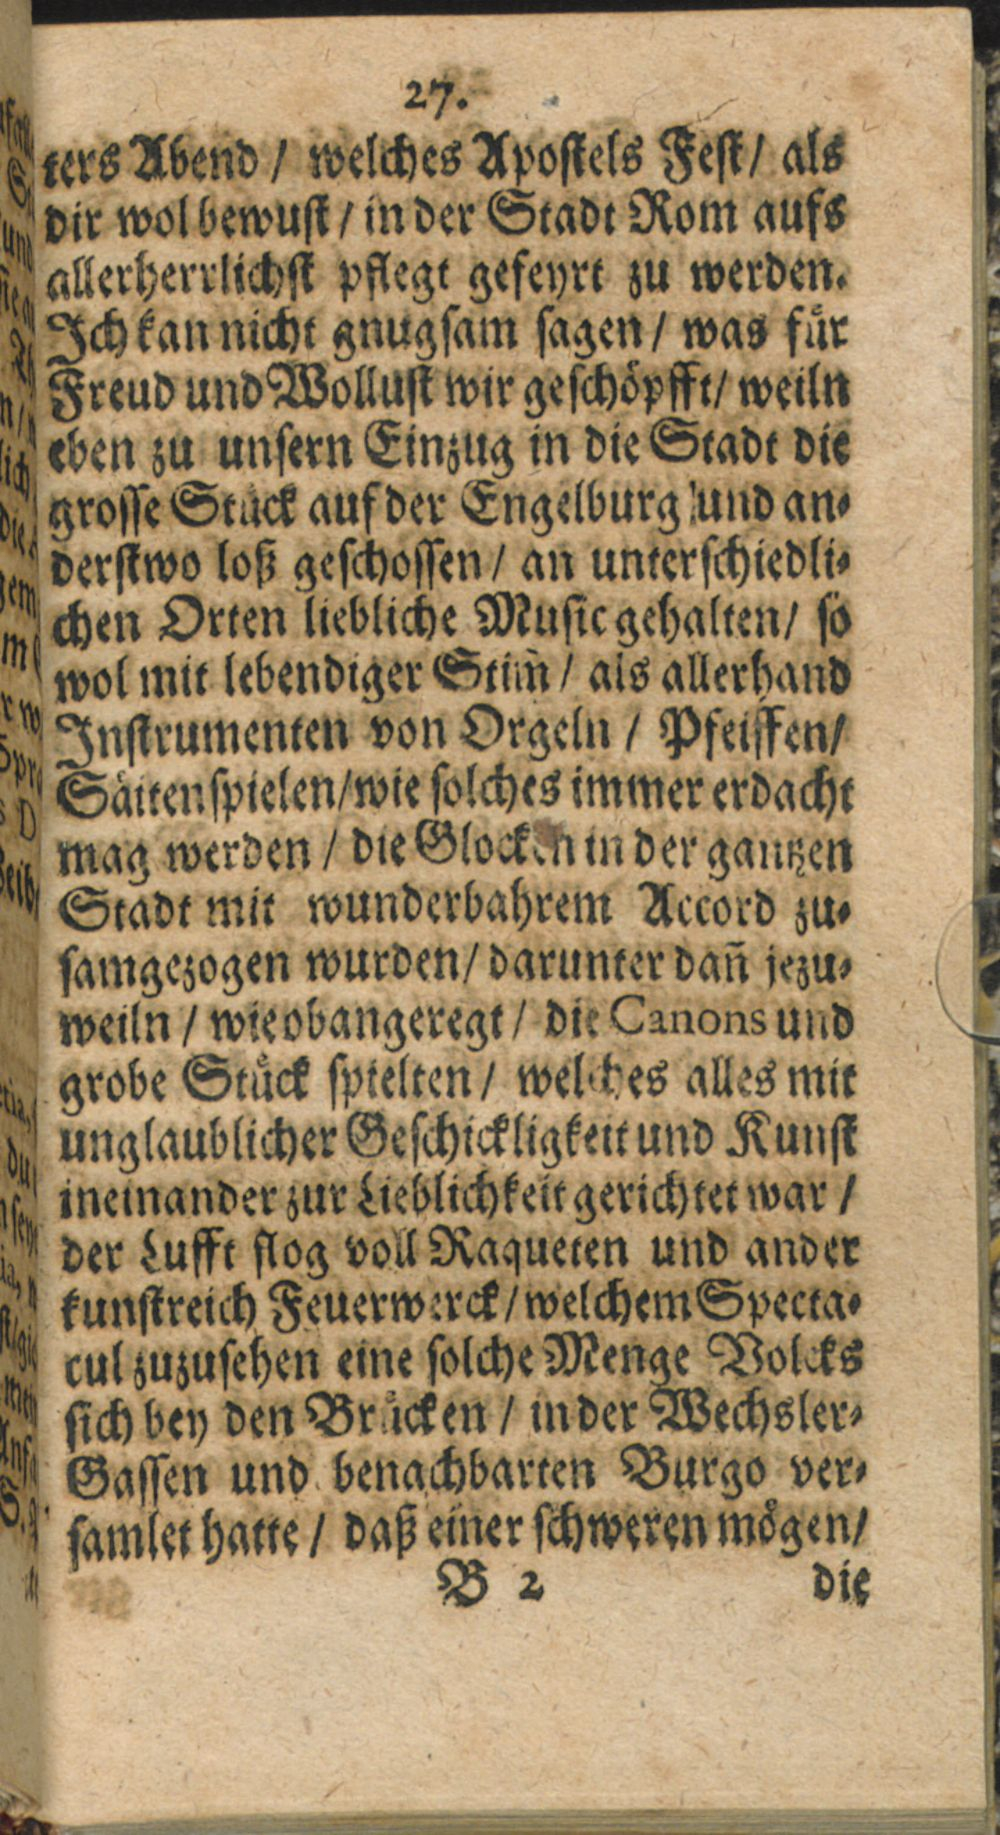 27.
ters Abend / welches Apostels Fest / als
dir wol bewust / in der Stadt Rom aufs
allerherrlichst pflegt gefeyrt zu werden.
Ich kan nicht gnugsam sagen / was für
Freud und Wollust wir geschöpfft / weiln
eben zu unsern Einzug in die Stadt die
grosse Stück auf der Engelburg und an-
derstwo loß geschossen / an unterschiedli-
chen Orten liebliche Music gehalten / so
wol mit lebendiger Stim̃ / als allerhand
Instrumenten von Orgeln / Pfeiffen /
Säitenspielen / wie solches immer erdacht
mag werden / die Glocken in der gantzen
Stadt mit wunderbahrem Accord zu-
samgezogen wurden / darunter dañ jezu-
weiln / wie obangeregt / die Canons und
grobe Stück spielten / welches alles mit
unglaublicher Geschickligkeit und Kunst
ineinander zur Lieblichkeit gerichtet war /
der Lufft flog voll Raqueten und ander
kunstreich Feuerwerck / welchem Specta-
cul zuzusehen eine solche Menge Volcks
sich bey den Brücken / in der Wechsler-
Gassen und benachbarten Burgo ver-
samlet hatte / daß einer schweren mögen /
B 2 die